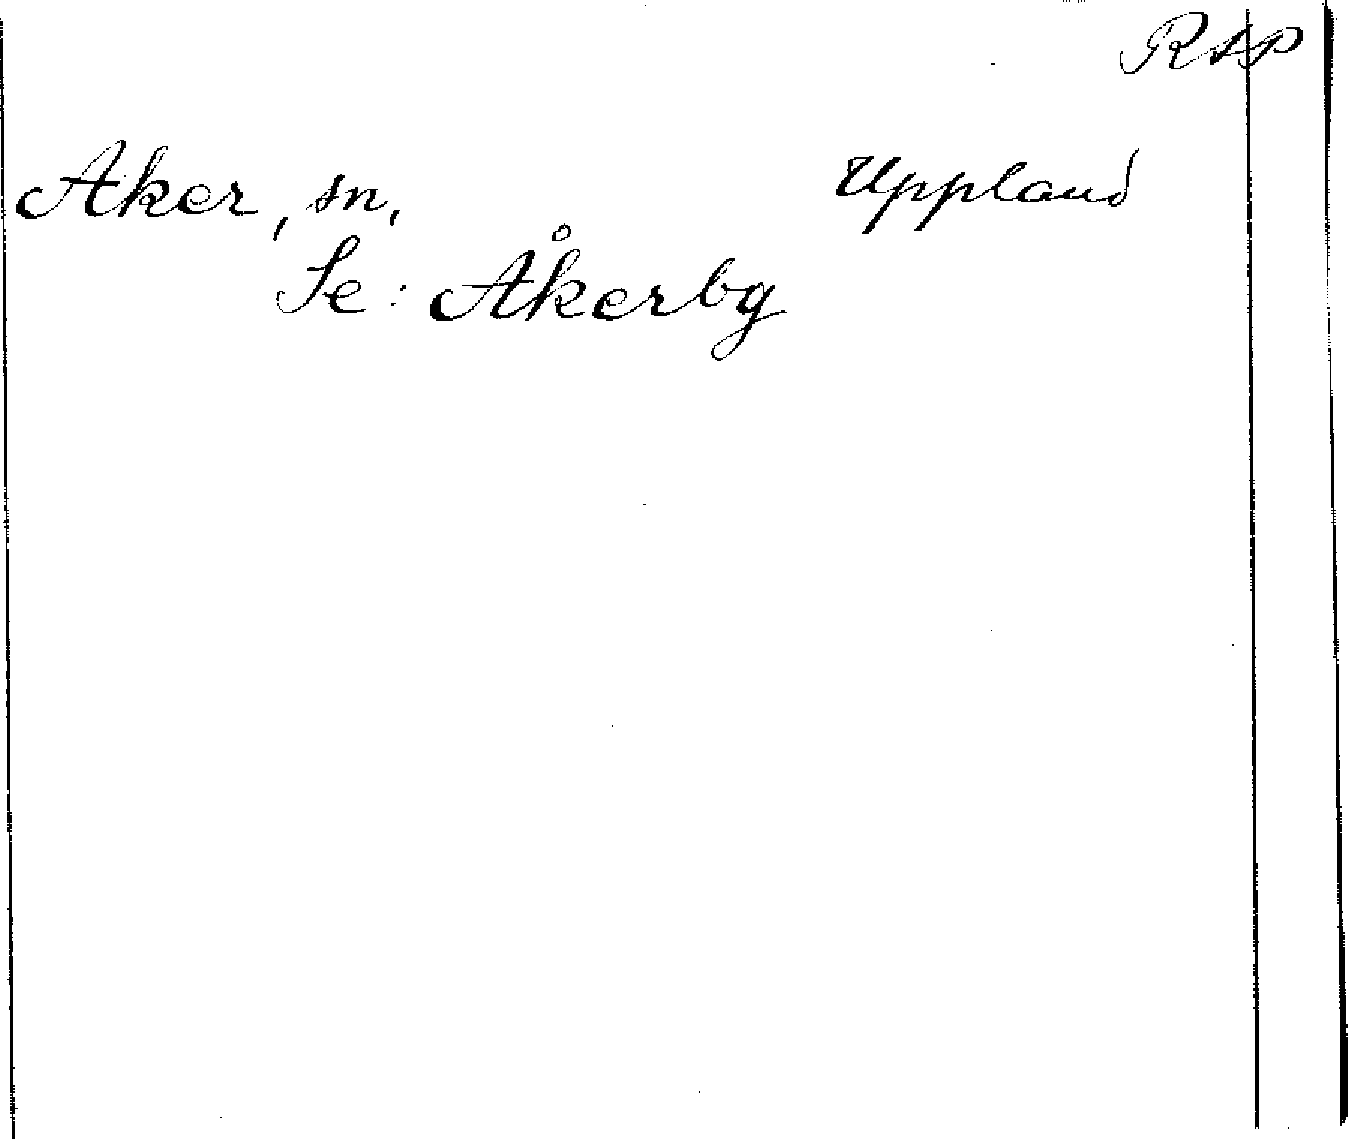 RAP
Aker, sn, Uppland
Se: Åkerby